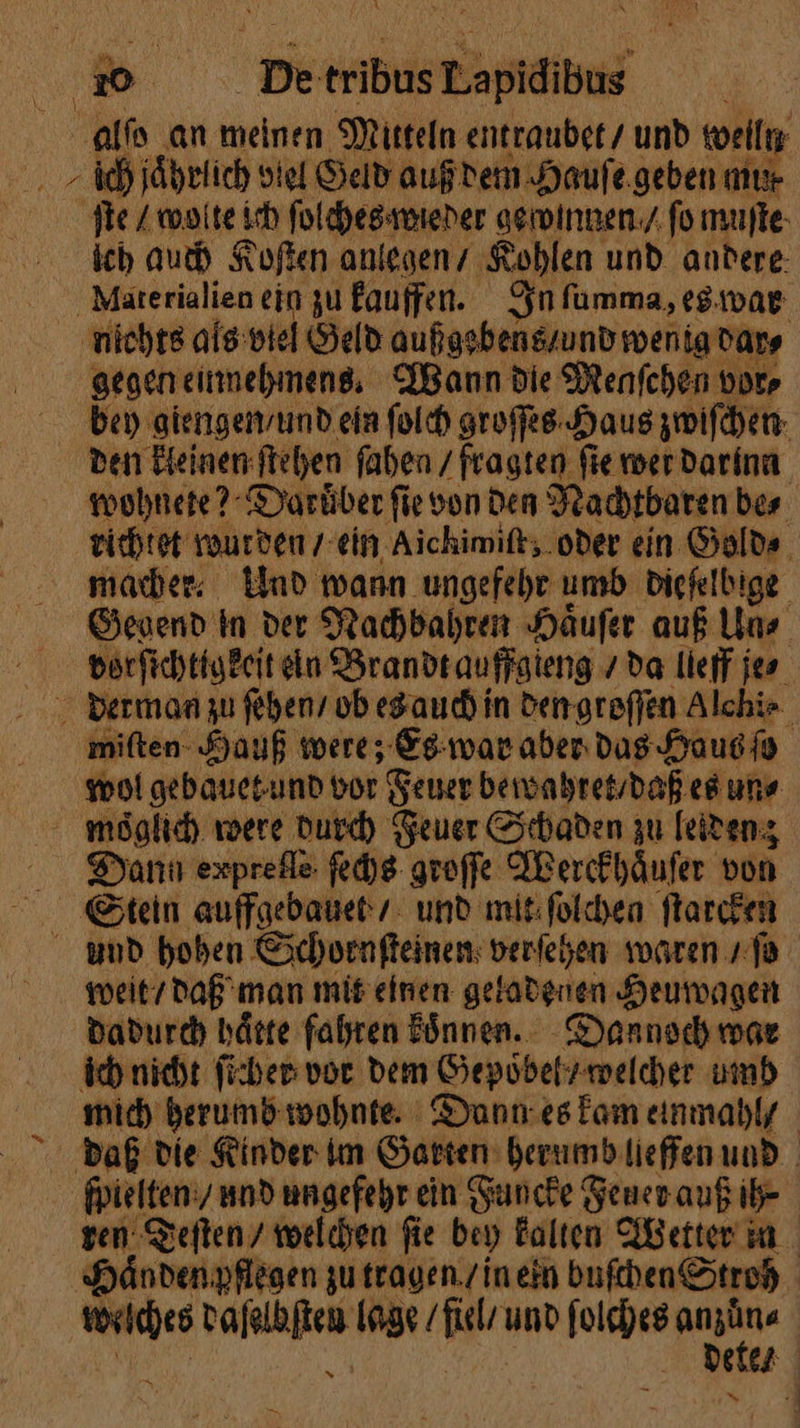 10 De tribus Lapidibus
alſo an meinen Mitteln entraubet / und weiln
ich jaͤhrlich viel Geld auß dem Hauſe geben mu-
ſte / wolte ich ſolches wieder gewinnen / ſo muſte
ich auch Koſten anlegen / Kohlen und andere
Materialien ein zu kauffen. In ſumma, es war
nichts als viel Geld außgebens / und wenig dar-
gegen einnehmens. Wann die Menſchen vor-
bey giengen / und ein ſolch groſſes Haus zwiſchen
den kleinen ſtehen ſahen / fragten ſie wer darinn
wohnete? Daruͤber ſie von den Nachtbaren be-
richtet wurden / ein Alchimiſt, oder ein Gold-
macher. Und wann ungefehr umb dieſelbige
Gegend in der Nachbahren Haͤuſer auß Un-
vorſichtigkeit ein Brandt auffgieng / da lieff je-
derman zu ſehen / ob es auch in den groſſen Alchi-
miſten Hauß were; Es war aber das Haus ſo
wol gebauet und vor Feuer bewahret / daß es un-
moͤglich were durch Feuer Schaden zu leiden;
Dann expreſſe ſechs groſſe Werckhaͤuſer von
Stein auffgebauet / und mit ſolchen ſtarcken
und hohen Schornſteinen verſehen waren / ſo
weit / daß man mit einen geladenen Heuwagen
dadurch haͤtte fahren koͤnnen. Dannoch war
ich nicht ſicher vor dem Gepoͤbel / welcher umb
mich herumb wohnte. Dann es kam einmahl /
daß die Kinder im Garten herumb lieffen und
ſpielten / und ungefehr ein Funcke Feuer auß ih-
ren Teſten / welchen ſie bey kalten Wetter in
Haͤnden pflegen zu tragen / in ein buſchen Stroh
welches daſelbſten lage / fiel / und ſolches anzuͤn-
dete /